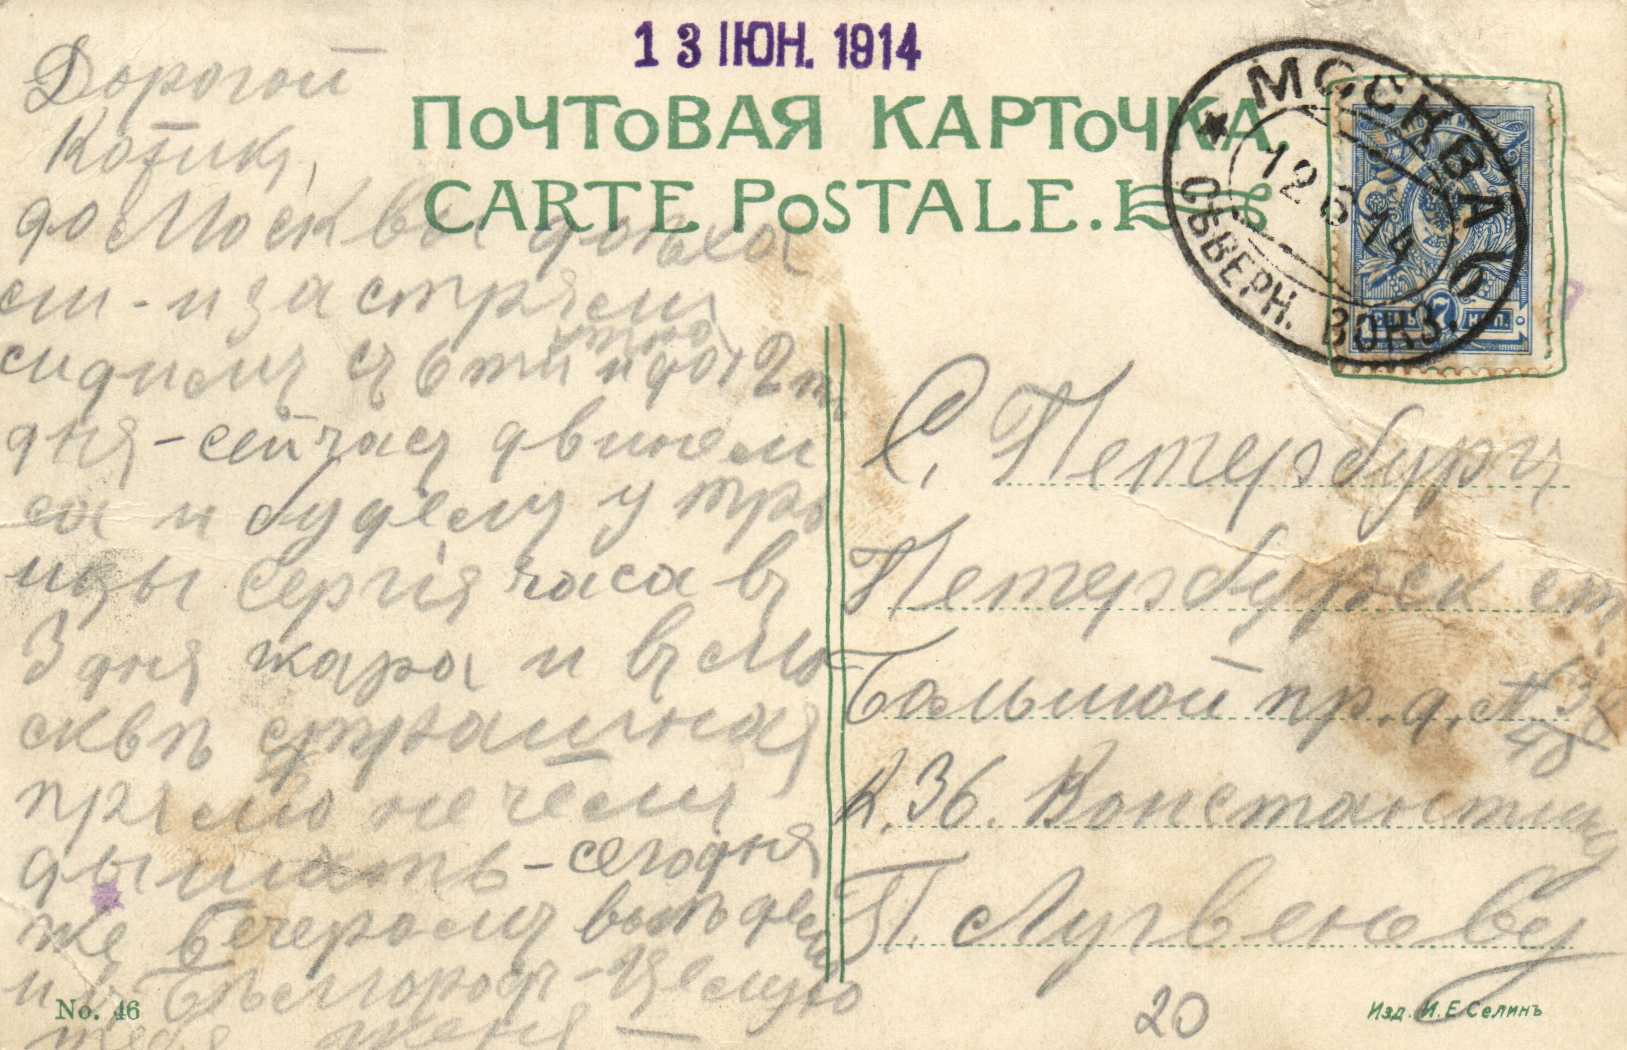 13 ІЮН. 1914
ПОЧТОВАЯ КАРТОЧКА
CARTE POSTALE.
МОСКВА 6
12 6 14
СѢВЕРН. ВОКЗ.
СЕМЬ 7 КОП.
Дорогой
Котикъ,
до Москвы доѣха
ли - и застряли
сидимъ съ 6ти и до 12ти
дня - сейчасъ двинем
ся и будемъ у Тро
ицы Сергія часа въ
3 дня жара и въ Мо
сквѣ страшная
прямо нечѣмъ
дышать - сегодня
же вечеромъ выѣдем
въ Бѣлгородъ - Целую
тебя Женя —
С. Петербургъ
Петербурск ст.
Большой пр. д. №
к. 36. Константину
П. Лугвеневу
20
No. 46
Изд. И. Е. Селинъ